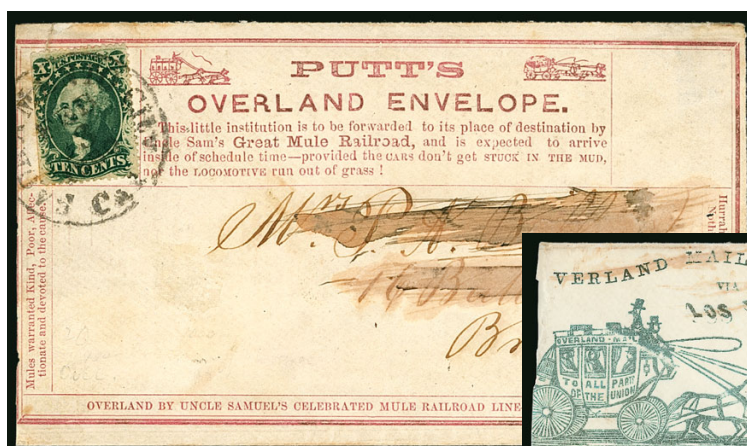 U.S. POSTAGE
X X
TEN CENTS
CAL
PUTT'S
OVERLAND ENVELOPE.
This little institution is to be forwarded to its place of destination by
Uncle Sam's Great Mule Railroad, and is expected to arrive
inside of schedule time—provided the CARS don't get STUCK IN THE MUD,
nor the LOCOMOTIVE run out of grass !
Mules warranted Kind, Poor, Affec-
tionate and devoted to the cause.
Hurra
Mrs
OVERLAND BY UNCLE SAMUEL'S CELEBRATED MULE RAILROAD LINE
VERLAND MAIL
VIA
LOS
OVERLAND-MAIL
TO ALL PART
OF THE UNION